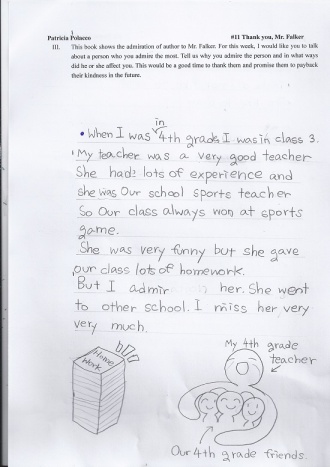 1
Patricia Polacco #11 Thank you, Mr. Falker
III. This book shows the admiration of author to Mr. Falker. For this week, I would like you to talk
about a person who you admire the most. Tell us why you admire the person and in what ways
did he or she affect you. This would be a good time to thank them and promise them to payback
their kindness in the future.
in
• When I was 4th grade I was in class 3.
My teacher was a very good teacher
She had lots of experience and
she was Our school sports teacher
So Our class always won at sports
game.
She was very funny but she gave
our class lots of homework.
But I admir her. She went
to other school. I miss her very
very much.
Home
Work
My 4th grade
teacher
Our 4th grade friends.